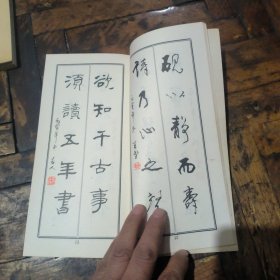 硯以靜而壽
詩乃心之聲
欲知千古事
須讀五車書